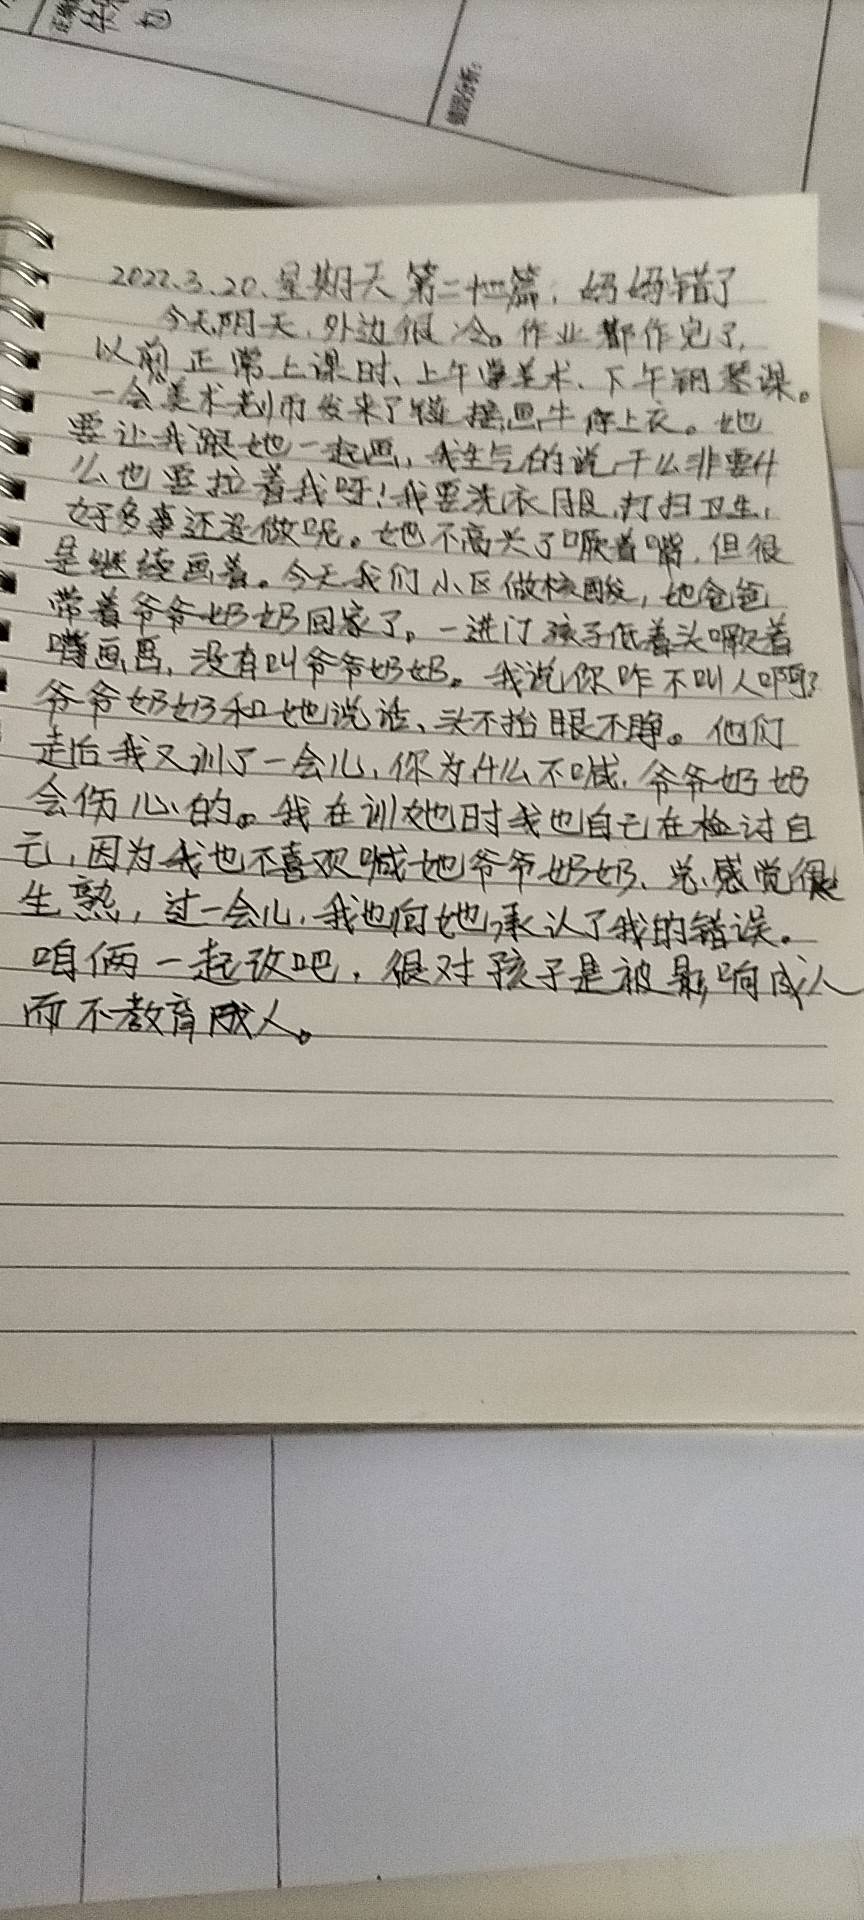 错因分析:
2022.3.20.星期天 第二十篇:妈妈错了
今天阴天,外边很冷。作业都作完了,
以前正常上课时、上午学美术、下午钢琴课。
一会美术老师发来了链接,画牛仔上衣。她
要让我跟她一起画,我生气的说,干么非要什
么也要拉着我呀!我要洗衣服,打扫卫生,
好多事还没做呢。她不高兴了噘着嘴,但很
是继续画着。今天我们小区做核酸,她爸爸
带着爷爷奶奶回家了。一进门孩子低着头噘着
嘴画画,没有叫爷爷奶奶。我说你咋不叫人啊?
爷爷奶奶和她说话、头不抬眼不睁。他们
走后我又训了一会儿,你为什么不喊,爷爷奶奶
会伤心的。我在训她时我也自己在检讨自
己,因为我也不喜欢喊她爷爷奶奶、总感觉很
生熟,过一会儿,我也向她承认了我的错误。
咱俩一起改吧,很对孩子是被影响成人
而不教育成人。